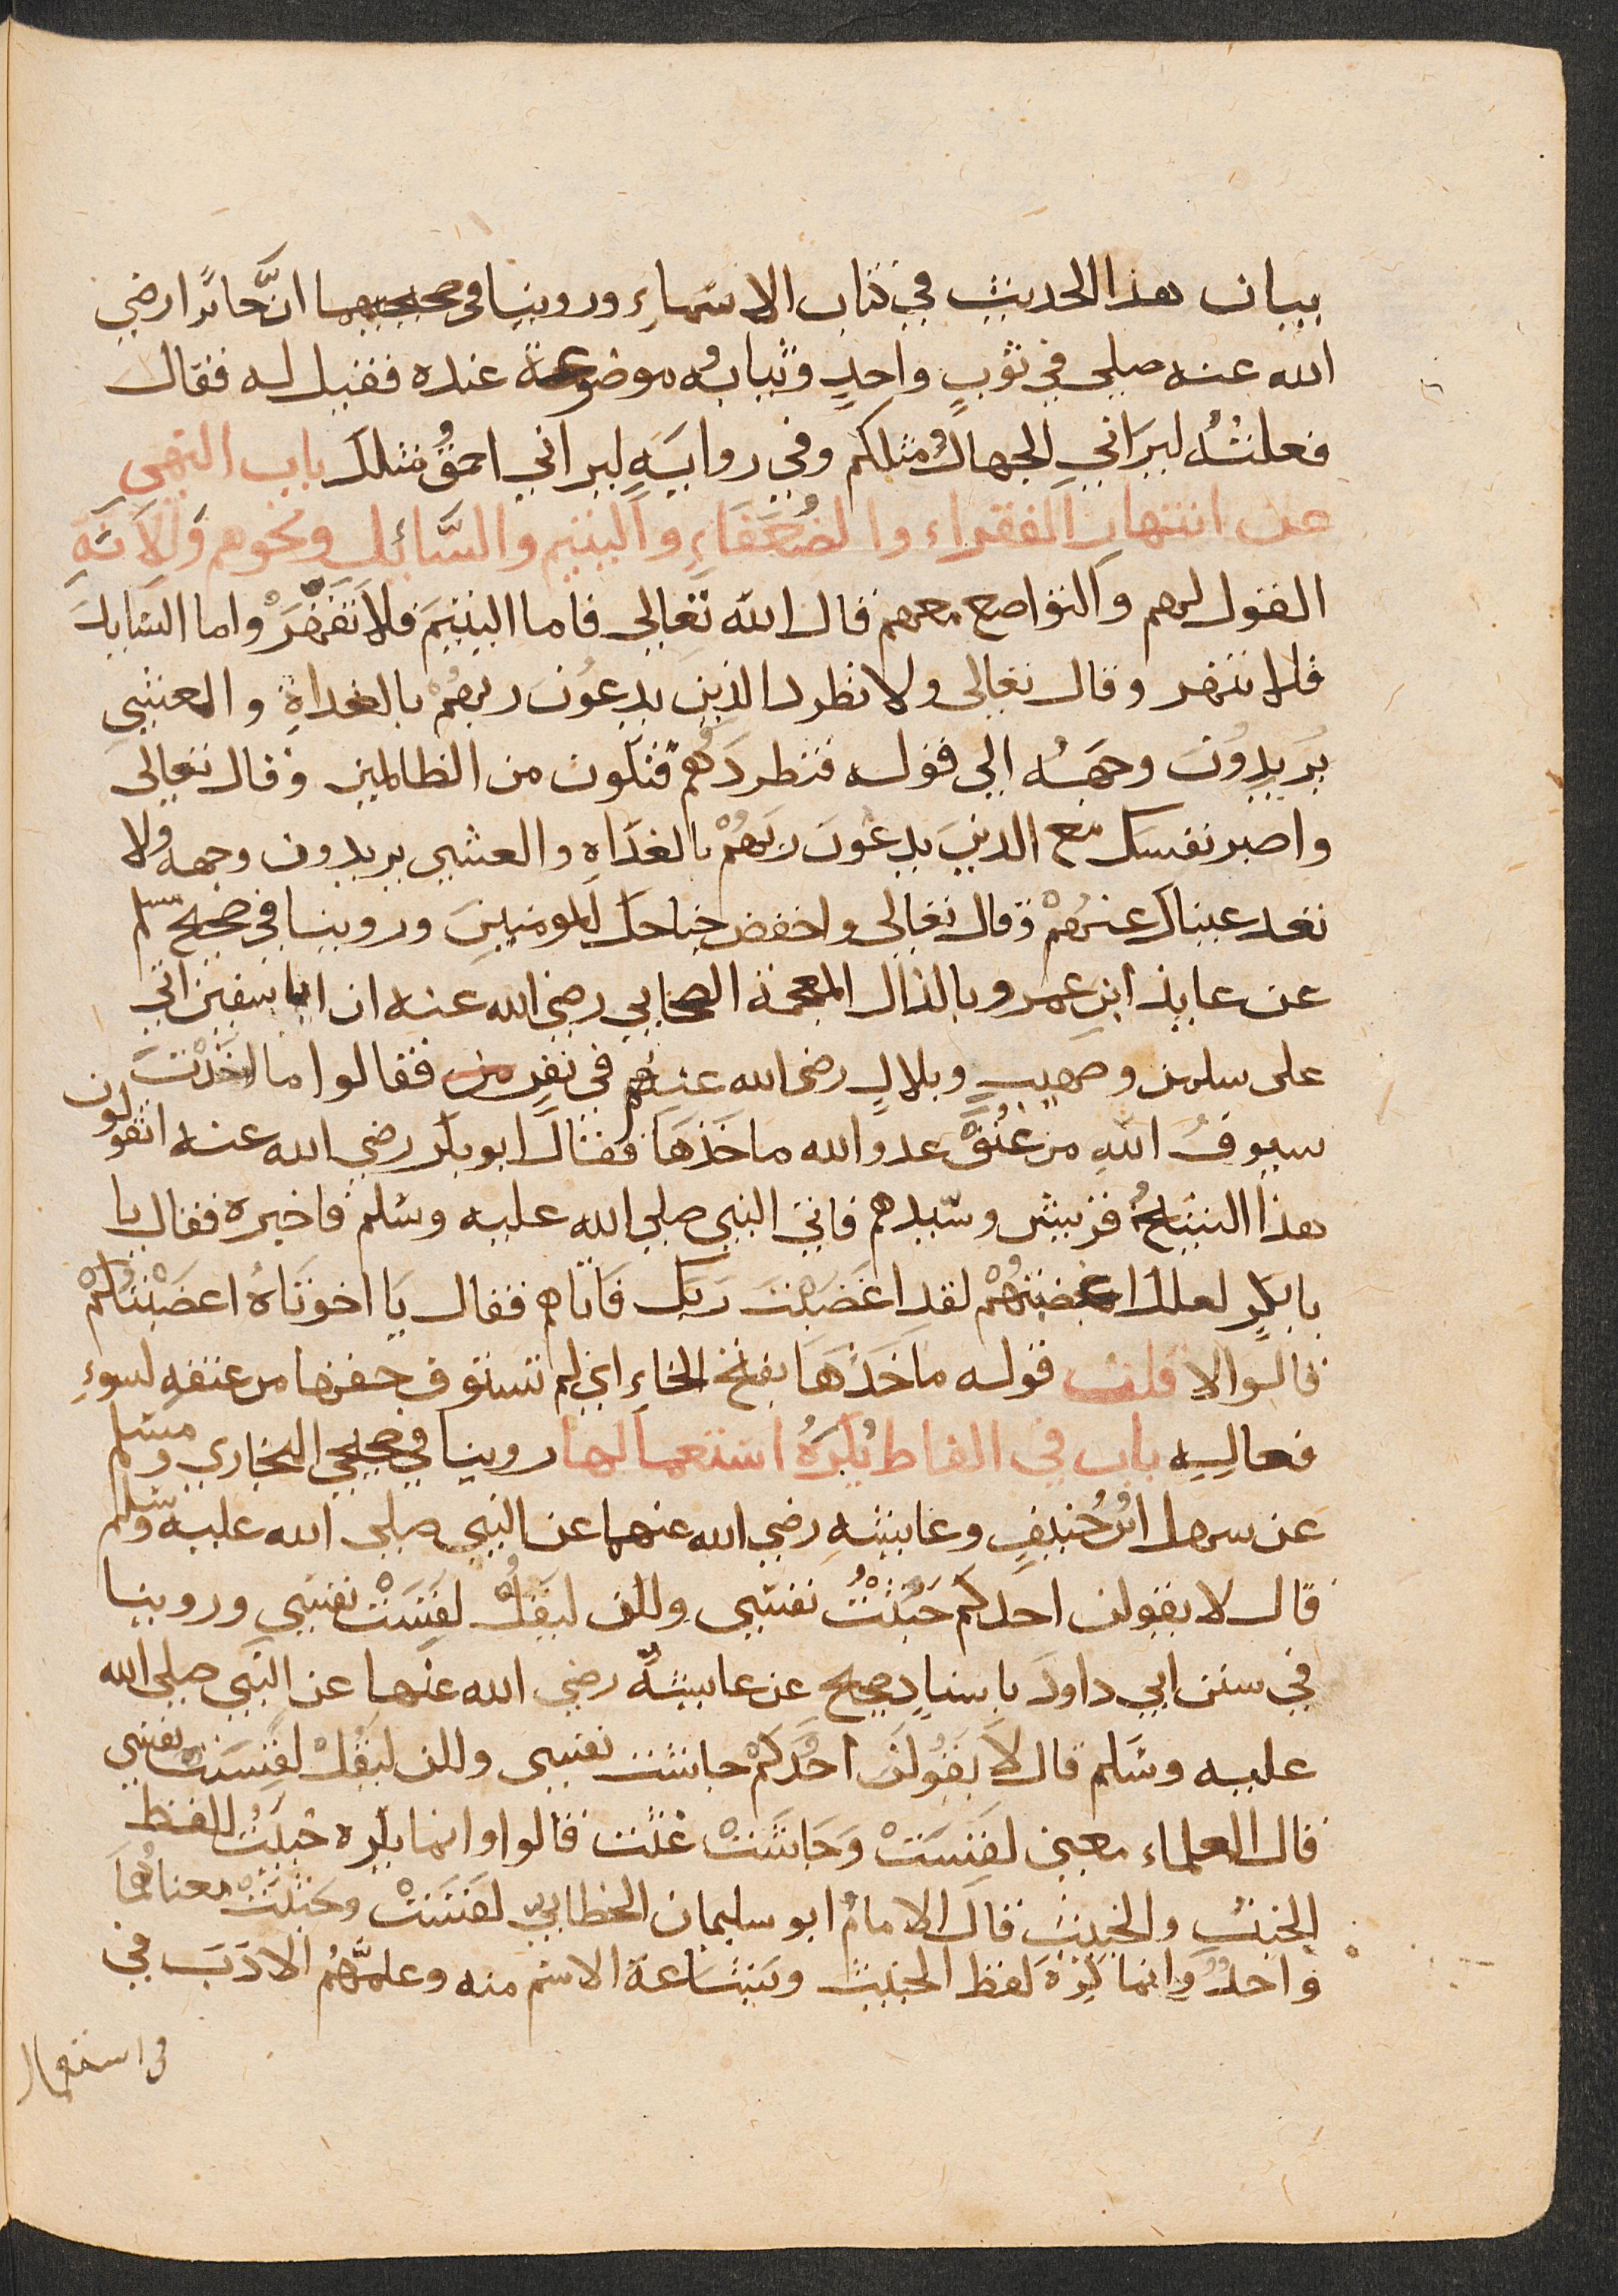 بيان هذا الحديث في كتاب الاسماءِ وروينا في صحيحيهما انَّ جابرًا رضي
الله عنه صلي في ثوبٍ واحدٍ وثيابُه موضوعة عنده فقيل له فقال
فعلتُهُ ليَراني الجهالُ مثلكم وفي روايةٍ ليراني احمقُ مثلك باب النهي
عن انتهارِ الفقراء والضُعَفَاءِ واليتيم والسَّائل ونحوهم وَالاَنةِ
القول لهم والتواضع معهم قال الله تعالي فاما اليتيمَ فلا تقهَرْ واما السَايلَ
فلا تنهر وقال تعالى ولا تطرد الذين يدعُونَ ربهُمْ بالغداةِ والعشي
يُريدُونَ وجهَهُ الي قوله فتطردَهُم فتكون من الظالمين وقال تعالى
واصبر نفسك مع الذينَ يدعُونَ ربهُمْ بالغَدَاهِ والعشي يريدون وجهه ولا
تعد عيناك عنهُمْ وقال تعالى واخفض جناحك للمومنينَ وروينا في صحيح مسلم
عن عايذ ابنِ عمرو بالذال المعجمة الصحابي رضي الله عنه ان ابا سفين اتي
على سلمن وصهيبٍ وبلالٍ رضى الله عنهم في نفرٍ من فقالوا ما اخذت
سيوفُ اللهِ من عُنُقِ عدو الله ماخذها فقال ابو بكر رضي الله عنه اتقولون
هذا لشيخُ قريش وسَيدهم فاتى النبي صلي الله عليه وسَلم فاخبره فقال يا
بابكرٍ لعلك اغضبتهُمْ لقد اغضَبْتَ ربَك فَاتاهم فقال يَا اخوتَاهُ اغضَبْتُكُمْ
قالوا لا قلت قوله ماخَذَهَا بفتح الخاءِ اي لم تستوفِ حقها من عنقهِ لسوءِ
فعالهِ باب في الفاظ يُكرَهُ استعمالها روينا في صحيحي البخاري ومسلم
عن سهل ابنِ حُنيفٍ وعايشهِ رضي الله عنهما عن النبي صلى الله عليه وسلم
قال لا يقولن احدكم خَبُثَتْ نفسَي ولكن ليَقُلْ لقَسَتْ نفسَي وروينا
في سنن ابي داود باسنادٍ صحيح عن عايشةَ رضي الله عنها عن النبي صلى الله
عليه وسَلم قال لاَ يَقُولَن احَدُكمْ جاشت نفسي ولكن ليَقُلْ لقسَتْ نفسي
قال العلماء معنى لقسَتْ وَجَاشَتْ غثت قالوا وانما يكره خبثَتْ للفظ
الخبثِ والخبيث قال الامامُ ابو سليمان الخطابي لقسَتْ وخبثَتْ معناهُمَا
واحدٌ وانما كرهَ لفظ الخبث وبَشَاعة الاسْمِ منه وعلمهُم الادَبَ في
في استعمال